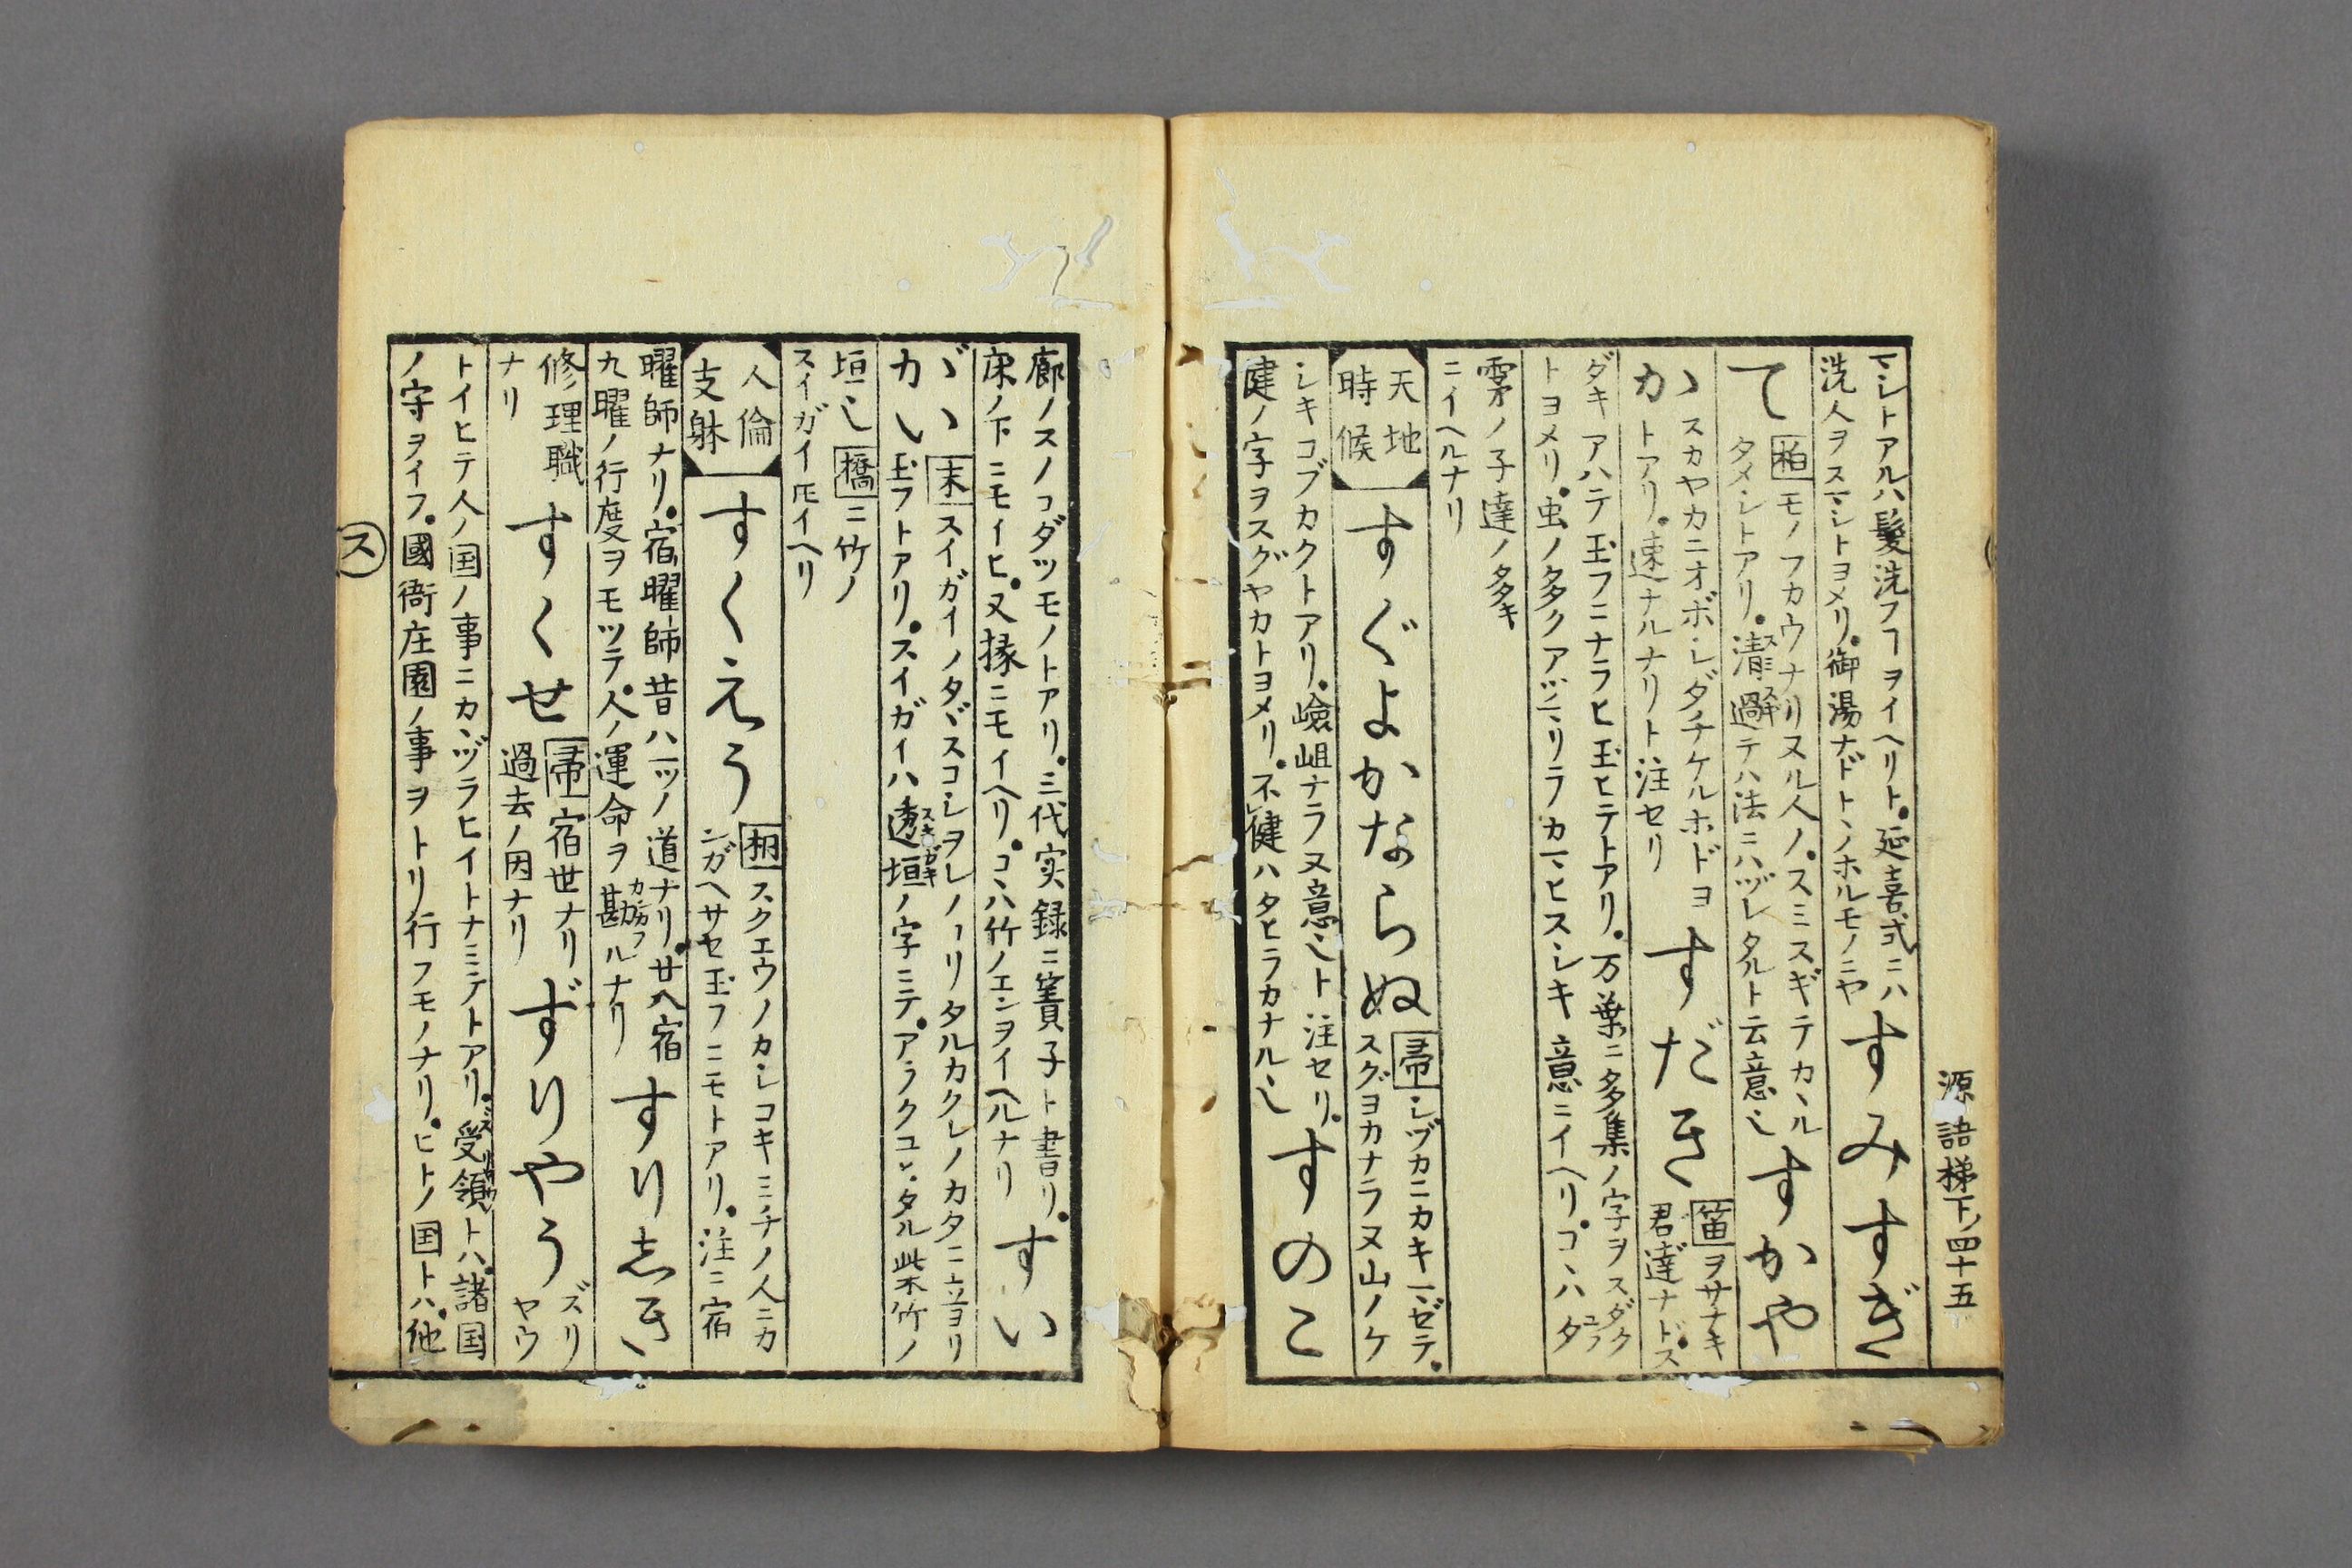 源語梯下ノ四十五
マシトアルハ髪洗フヿヲイヘリト。延喜式ニハ
洗人ヲスマシトヨメリ。御湯ナドトヽノホルモノニヤ
すみすぎ
て
柏モノフカウナリヌル人ノ。スミスギテカヽル
タメシトアリ。清過テハ法ニハヅレタルト云意也
すかや
か
スカヤカニオボシダチケルホドヨ
トアリ。速ナルナリト注セリ
すだき
笛ヲサナキ
君達ナド。ス
ダキアハテ玉フニナラヒ玉ヒテトアリ。万葉ニ多集ノ字ヲスダク
トヨメリ。虫ノ多クアツヽリラカマヒスシキ意ニイヘリ。コヽハタユフ
霁ノ子達ノ多キ
ニイヘルナリ
天地
時候
すぐよかならぬ
帚シヅカニカキマゼテ。
スグヨカナラヌ山ノケ
シキコブカクトアリ。嶮岨ナラヌ意也ト注セリ。
健ノ字ヲスグヤカトヨメリ。不健ハタヒラカナル也
すのこ
廊ノスノコダツモノトアリ。三代実録ニ簀子ト書リ。
床ノ下ニモイヒ。又掾ニモイヘリ。コヽハ竹ノエンヲイヘルナリ
すい
がい
末スイガイノタヾスコシヲレノコリタルカクレノカタニ立ヨリ
玉フトアリ。スイガイハ透垣ノ字ミテ。アラクユヒタル柴竹ノ
スキガキ
垣也橋ニ竹ノ
スイガイ𪜈イヘリ
人倫
支躰
すくえう
桐スクエウノカシコキミチノ人ニカ
ンガヘサセ玉フニモトアリ。注ニ宿
曜師ナリ。宿曜師昔ハ一ツノ道ナリ。廿八宿
九曜ノ行度ヲモツテ。人ノ運命ヲ勘ルナリ
カンガフ
すりしき
修理職
ナリ
すくせ
帚宿世ナリ
過去ノ因ナリ
ずりやう
ズリ
ヤウ
トイヒテ人ノ国ノ事ニカヽヅラヒイトナミテトアリ。受領トハ。諸国
ズリヤウ
ノ守ヲイフ。國衙庄園ノ事ヲトリ行フモノナリ。ヒトノ国トハ。他
ス